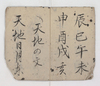 辰巳午未
申酉戌亥
天地の文
天地日月